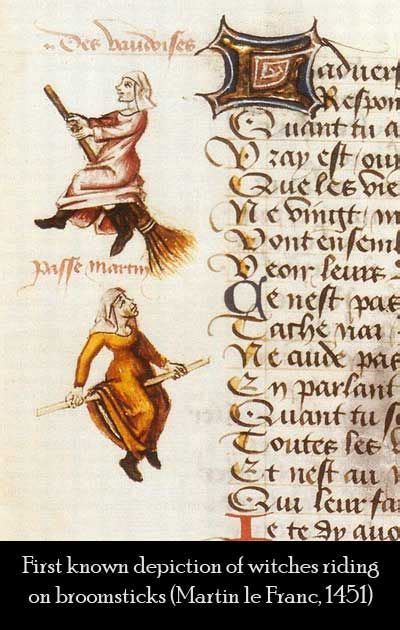 Des vaudoises
passe martin
L adver
Respon
Quant tu a
Vray est, ouy
Que les vie
Ne vingt, m
Vont ensem
Veoir leurs
Ce nest pas
Tache
Ne cuide pas
En parlant
Quant tu
Toutes les
Et nest au
Qui leur fa
Ie te dy
First known depiction of witches riding
on broomsticks (Martin le Franc, 1451)